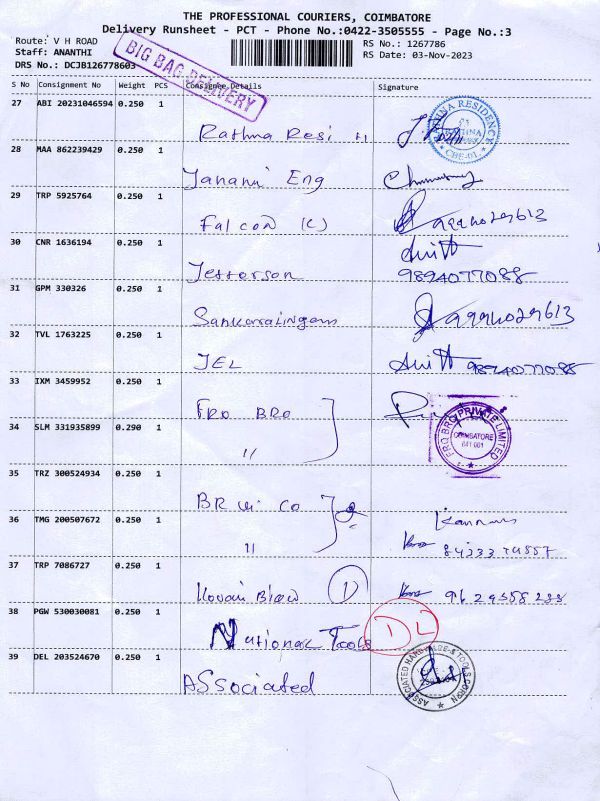 THE PROFESSIONAL COURIERS, COIMBATORE
Delivery Runsheet - PCT - Phone No.:0422-3505555 - Page No.:3
Route: V H ROAD
Staff: ANANTHI
DRS No.: DCJB126778603
BIG BAG DELIVERY
RS No.: 1267786
RS Date: 03-Nov-2023
S No Consignment No Weight PCS Consignee Details Signature
27 ABI 20231046594 0.250 1
Rathna Resi
RATHNA RESIDENCY
CBE-01
28 MAA 862239429 0.250 1
Janani Eng
29 TRP 5925764 0.250 1
Falcon (C)
30 CNR 1636194 0.250 1
Jefferson 9894077088
31 GPM 330326 0.250 1
Sankaralingam
32 TVL 1763225 0.250 1
JEL 9894077088
33 IXM 3459952 0.250 1
FRO BRO
FRO BRO PRIVATE LIMITED
COIMBATORE
641 001
34 SLM 331935899 0.290 1
"
35 TRZ 300524934 0.250 1
36 TMG 200507672 0.250 1
"
37 TRP 7086727 0.250 1
38 PGW 530030081 0.250 1
National Tools DL
39 DEL 203524670 0.250 1
Associated
ASSOCIATED HARDWARE & TOOLS CORPN